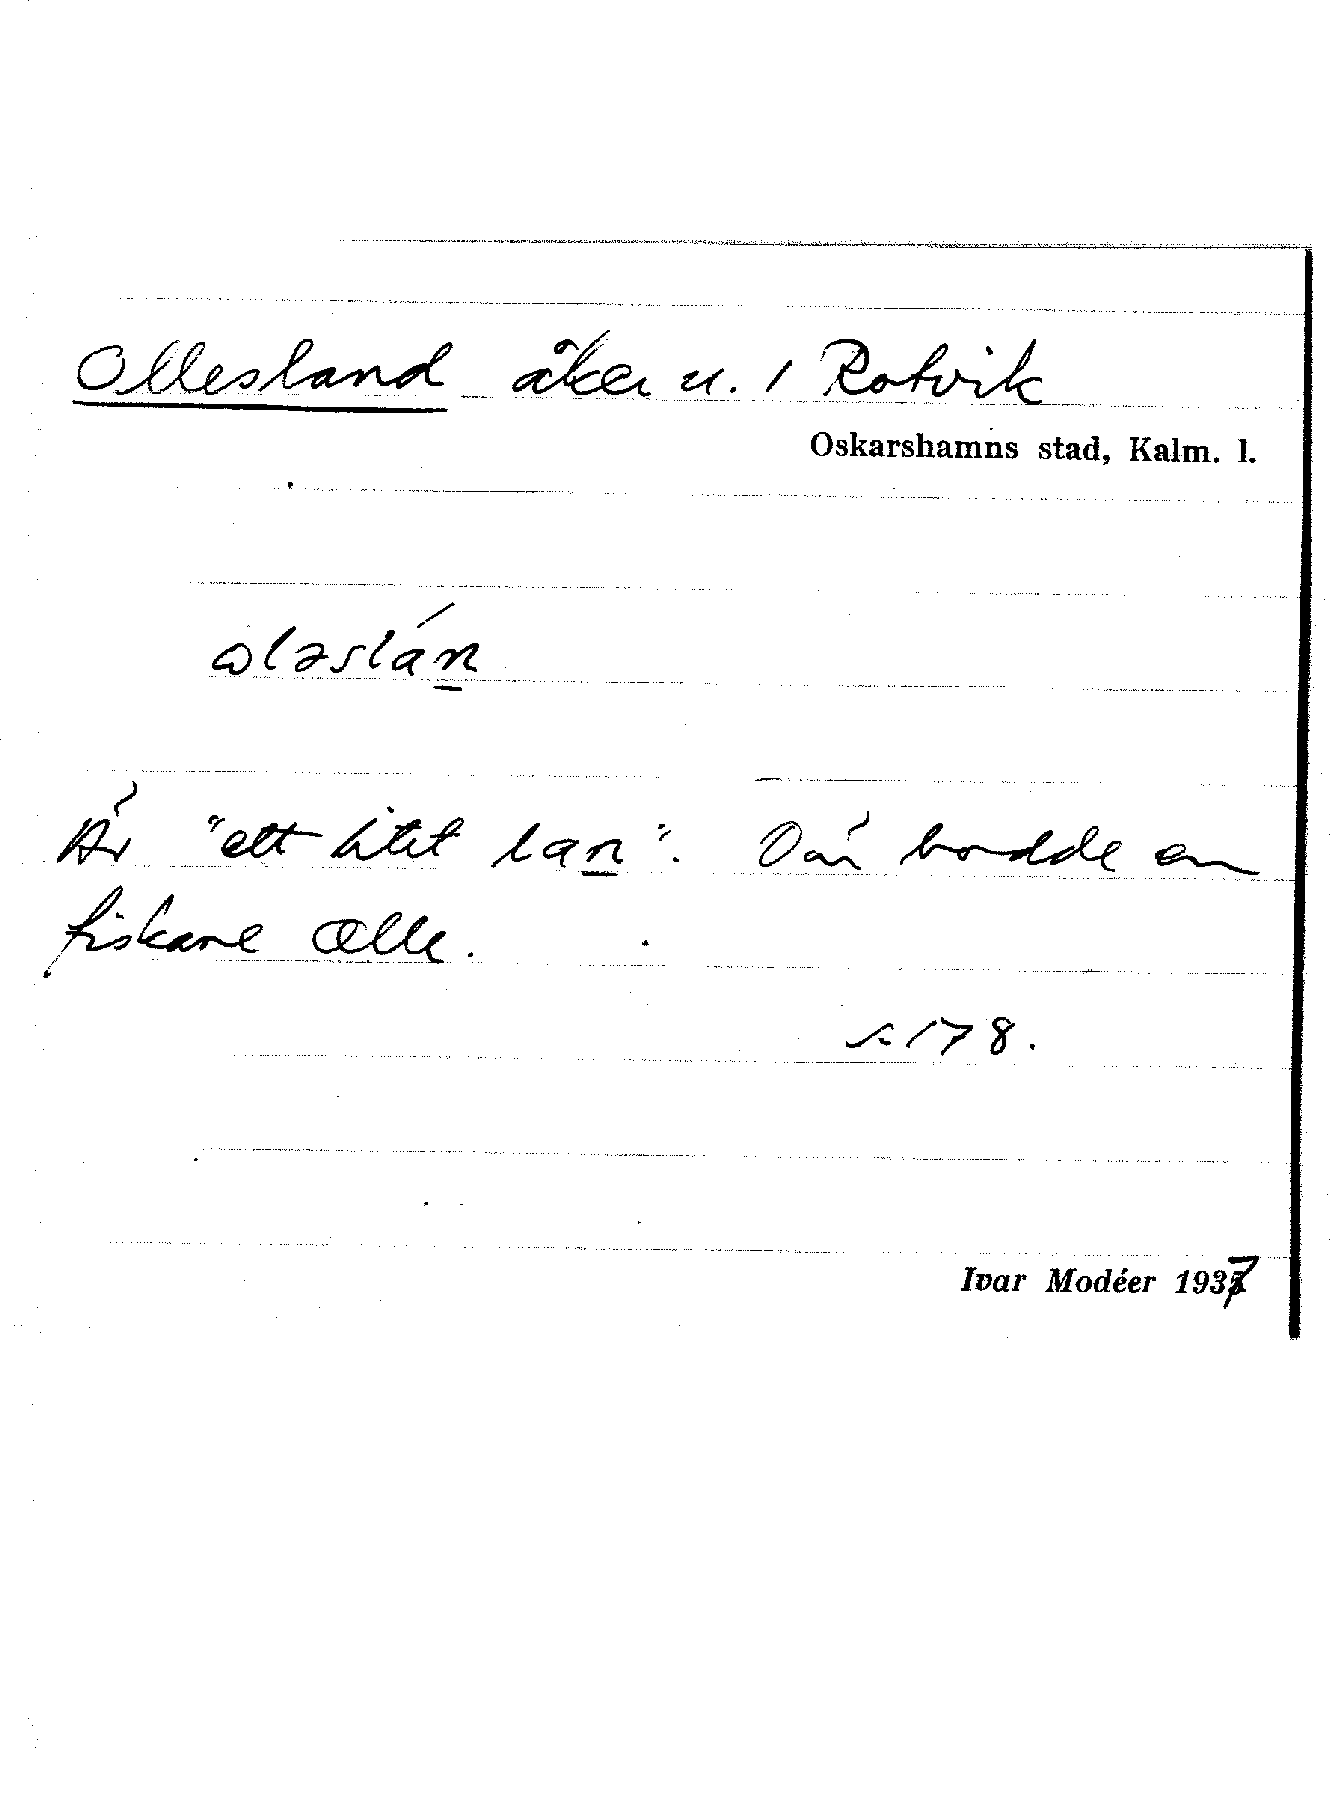 Ollesland åker u. 1 Rotvik
Oskarshamns stad, Kalm. l.
ɷləslán
Är "ett litet lan". Där bodde en
fiskare Olle.
s. 178.
Ivar Modéer 1937